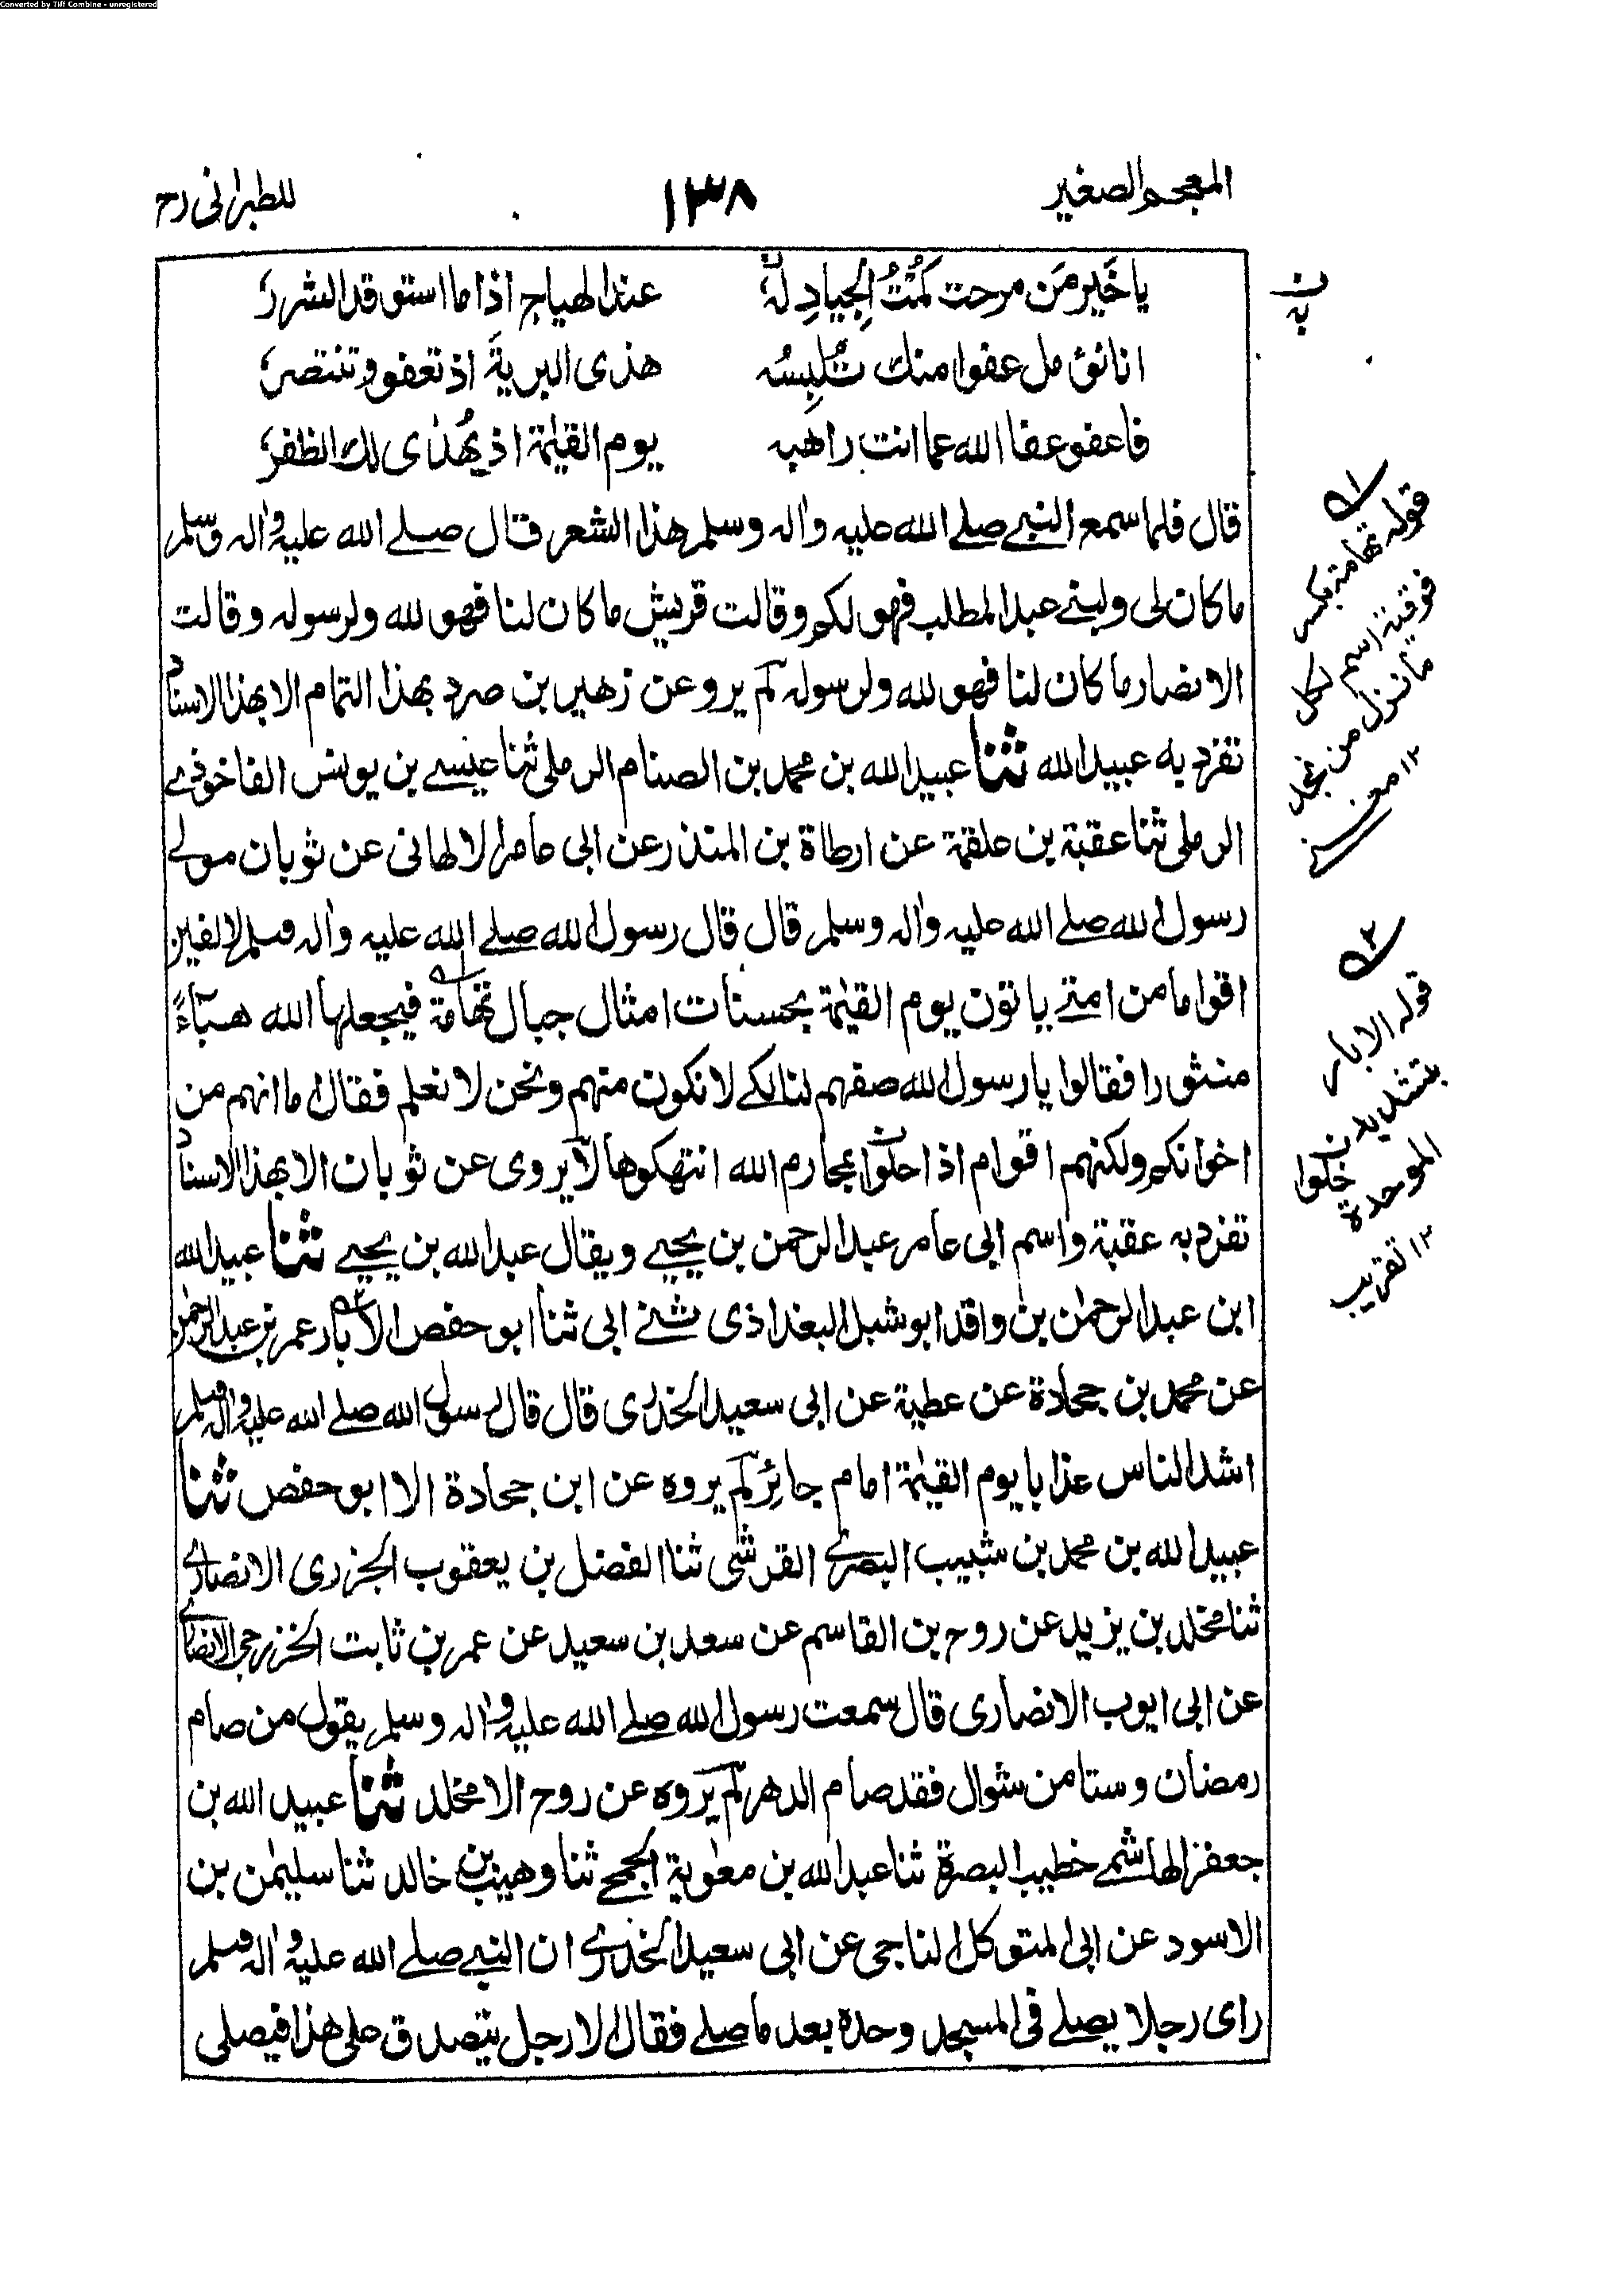 Converted by Tiff Combine - unregistered
المعجم الصغير ١٣٨ للطبرانى رح
يا خَير مَن مرحت كُمْتُ الجِيادِ لهٗ عند الهياج اذا ما استوقد الشررُ
انا نؤمل عفوا منك تُلبِسُه هذى البرية اذ تعفو وتنتصرُ
فاعفو عفا الله عما انت راهبه يوم القيٰمة اذ يُهدٰى لك الظفرُ
قال فلما سمع النبى صلى الله عليه واٰله وسلم هذا الشعر قال صلى الله عليه واٰله وسلم
ما كان لى ولبنى عبد المطلب فهو لكم وقالت قريش ما كان لنا فهو لله ولرسوله وقالت
الانصار ما كان لنا فهو لله ولرسوله لم يرو عن زهير بن صرد بهذا التمام الا بهذا الاسناد
تفرد به عبيد الله ثنا عبيد الله بن محمد بن الصنام الرملى ثنا عيسى بن يونس الفاخورى
الرملى ثنا عقبة بن علقمة عن ارطاة بن المنذر عن ابى عامر الالهانى عن ثوبان مولى
رسول الله صلى الله عليه واٰله وسلم قال قال رسول الله صلى الله عليه واٰله وسلم لالفين
اقواما من امتى ياتون يوم القيٰمة بحسنات امثال جبال تهامة فيجعلها الله هبآءً
منثورا فقالوا يا رسول الله صفهم لنا لكى لا نكون منهم ونحن لا نعلم فقال اما انهم من
اخوانكم ولكنهم اقوام اذا حلوا بمحارم الله انتهكوها لا يروى عن ثوبان الا بهذا الاسناد
تفرد به عقبة واسم ابى عامر عبد الرحمن بن يحيى ويقال عبد الله بن يحيى ثنا عبيد الله
ابن عبد الرحمٰن بن واقد ابو شبل البغداذى ثنى ابى ثنا ابو حفص الابار عمر بن عبد الرحمٰن
عن محمد بن جحادة عن عطية عن ابى سعيد الخدرى قال قال رسول الله صلى الله عليه واٰله وسلم
اشد الناس عذابا يوم القيٰمة امام جائر لم يروه عن ابن جحادة الا ابو حفص ثنا
عبيد الله بن محمد بن شبيب البصرى القرشى ثنا الفضل بن يعقوب الجزرى الانصارى
ثنا مخلد بن يزيد عن روح بن القاسم عن سعد بن سعيد عن عمر بن ثابت الخزرجى الانصارى
عن ابى ايوب الانصارى قال سمعت رسول الله صلى الله عليه واٰله وسلم يقول من صام
رمضان وستا من شوال فقد صام الدهر لم يروه عن روح الا مخلد ثنا عبيد الله بن
جعفر الهاشمى خطيب البصرة ثنا عبد الله بن معٰوية الجمحى ثنا وهيب بن خالد ثنا سليمٰن بن
الاسود عن ابى المتوكل الناجى عن ابى سعيد الخدرى ان النبى صلى الله عليه واٰله وسلم
راى رجلا يصلى فى المسجد وحده بعد ما صلى فقال الا رجل يتصدق على هذا فيصلى
ن
به
١
قوله تهامة بكسر
فوقية اسم لكل
ما نزل من نجد
١٢ مغنى
٢
قوله الابار
بتشديد
الموحدة
١٢ تقريب
ن
خلوا